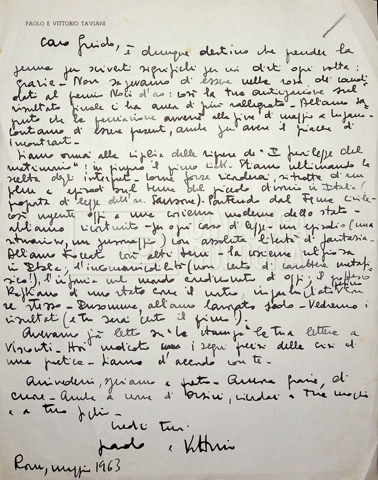 PAOLO E VITTORIO TAVIANI
Caro Guido, è dunque destino che prender la
penna per scriverti significhi per noi dirti ogni volta:
grazie - Non sapevamo di essere nella rosa dei candi
dati al premio : così la tua anticipazione sul
risultato finale ci ha ancor di più rallegrato - Abbiamo sa
puto che la premiazione avverrà alla fine di maggio a
contiamo di essere presenti, anche per avere il piacere di
incontrarti -
Siamo ormai alla vigilia delle riprese de "I fuorilegge del
matrimonio": in giugno il primo ciak. Stiamo ultimando la
scelta degli interpreti - Come forse ricorderai, si tratta di un
film a episodi sul tema del piccolo divorzio in Italia (
proposta di legge dell'on. Sansone). Partendo dal
così urgente oggi a una coscienza moderna dello stato -
abbiamo costruito - su ogni caso di legge - un episodio (una
situazione, un personaggio) con assoluta libertà di fantasia -
Abbiamo toccato così altri temi: la violenza
in Italia, l'incomunicabilità (non certo di carattere metafi
sico!), l'infanzia nel mondo
di uno stato come il nostro, in
se stesso - Davvero, abbiamo lavorato sodo - Vedremo i
risultati (e tu sarai certo il primo).
Avevamo già letto su "La Stampa" la tua lettera a
Visconti - Hai indicato i segni precisi della crisi di
una poetica - Siamo d'accordo con te -
Arrivederci, speriamo a presto - Ancora grazie, di
cuore - Anche a nome di , ricordaci a Tua moglie
e a tuo figlio -
tuoi
Paolo e Vittorio
Roma, maggio 1963